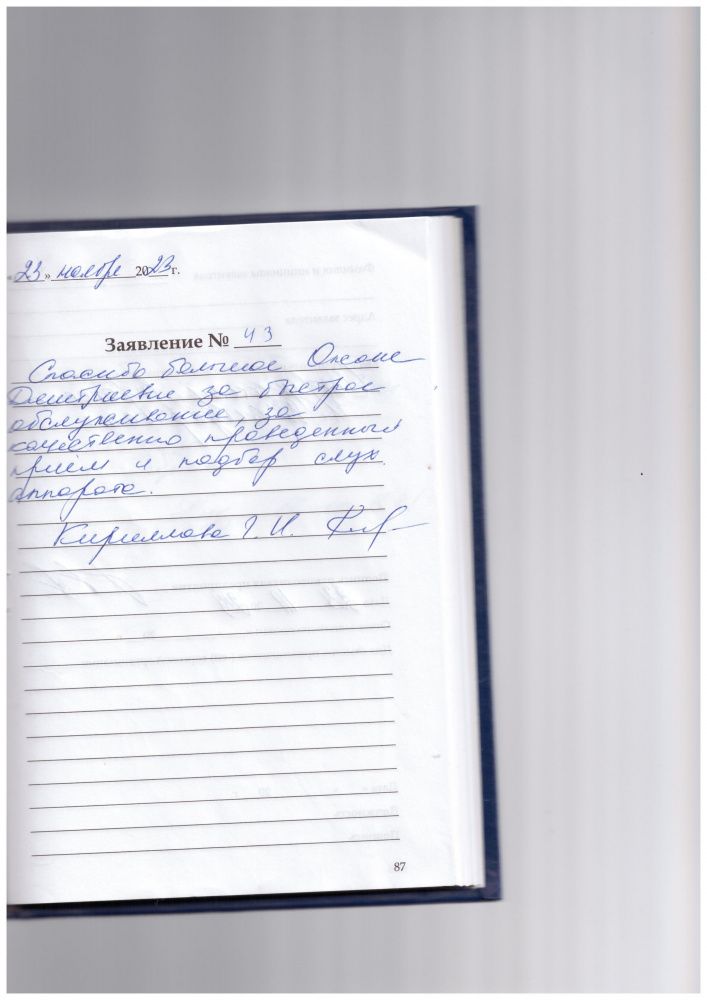 «23» ноября 2023 г.
Заявление № 43
Спасибо большое Оксане
Дмитриевне за быстрое
обслуживание, за
качественно проведенный
приём и подбор слух.
аппарата.
Кириллова Г. И.
87